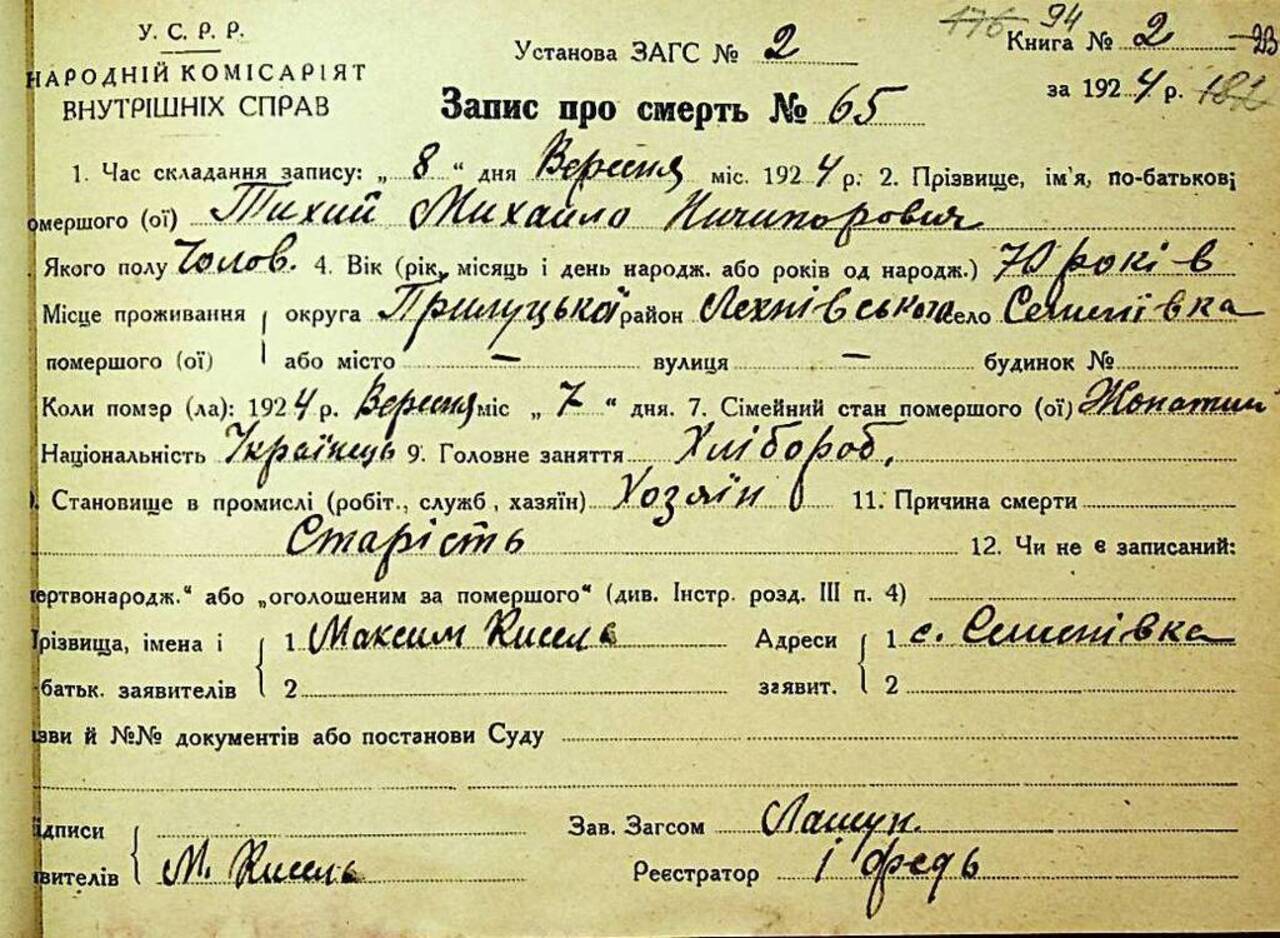 У. С. Р. Р.
НАРОДНІЙ КОМІСАРІЯТ
ВНУТРІШНІХ СПРАВ
Установа ЗАГС № 2
176 94
Книга № 2 23
за 1924 р. 182
Запис про смерть № 65
1. Час складання запису: „ 8 “ дня Вересня міс. 1924 р. 2. Прізвище, ім'я, по-батькові
омершого (ої) Тихий Михайло Ничипорович
. Якого полу Чолов. 4. Вік (рік, місяць і день народж. або років од народж.) 70 років
Місце проживання округа Прилуцької район Лехнівського село Семенівка
помершого (ої) або місто — вулиця — будинок №
Коли помэр (ла): 1924 р. Вересня міс „ 7 “ дня. 7. Сімейний стан помершого (ої) Жонатий
Національність Українець 9. Головне заняття Хлібороб,
. Становище в промислі (робіт., служб, хазяїн) Хозяїн 11. Причина смерти
Старість 12. Чи не є записаний:
ертвонародж.“ або „оголошеним за помершого“ (див. Інстр. розд. III п. 4)
різвища, імена і 1 Максим Кисель Адреси 1 с. Семенівка
-батьк. заявителів 2 заявит. 2
зви й №№ документів або постанови Суду
ідписи Зав. Загсом Лашун.
вителів М. Кисель Реєстратор І Федь